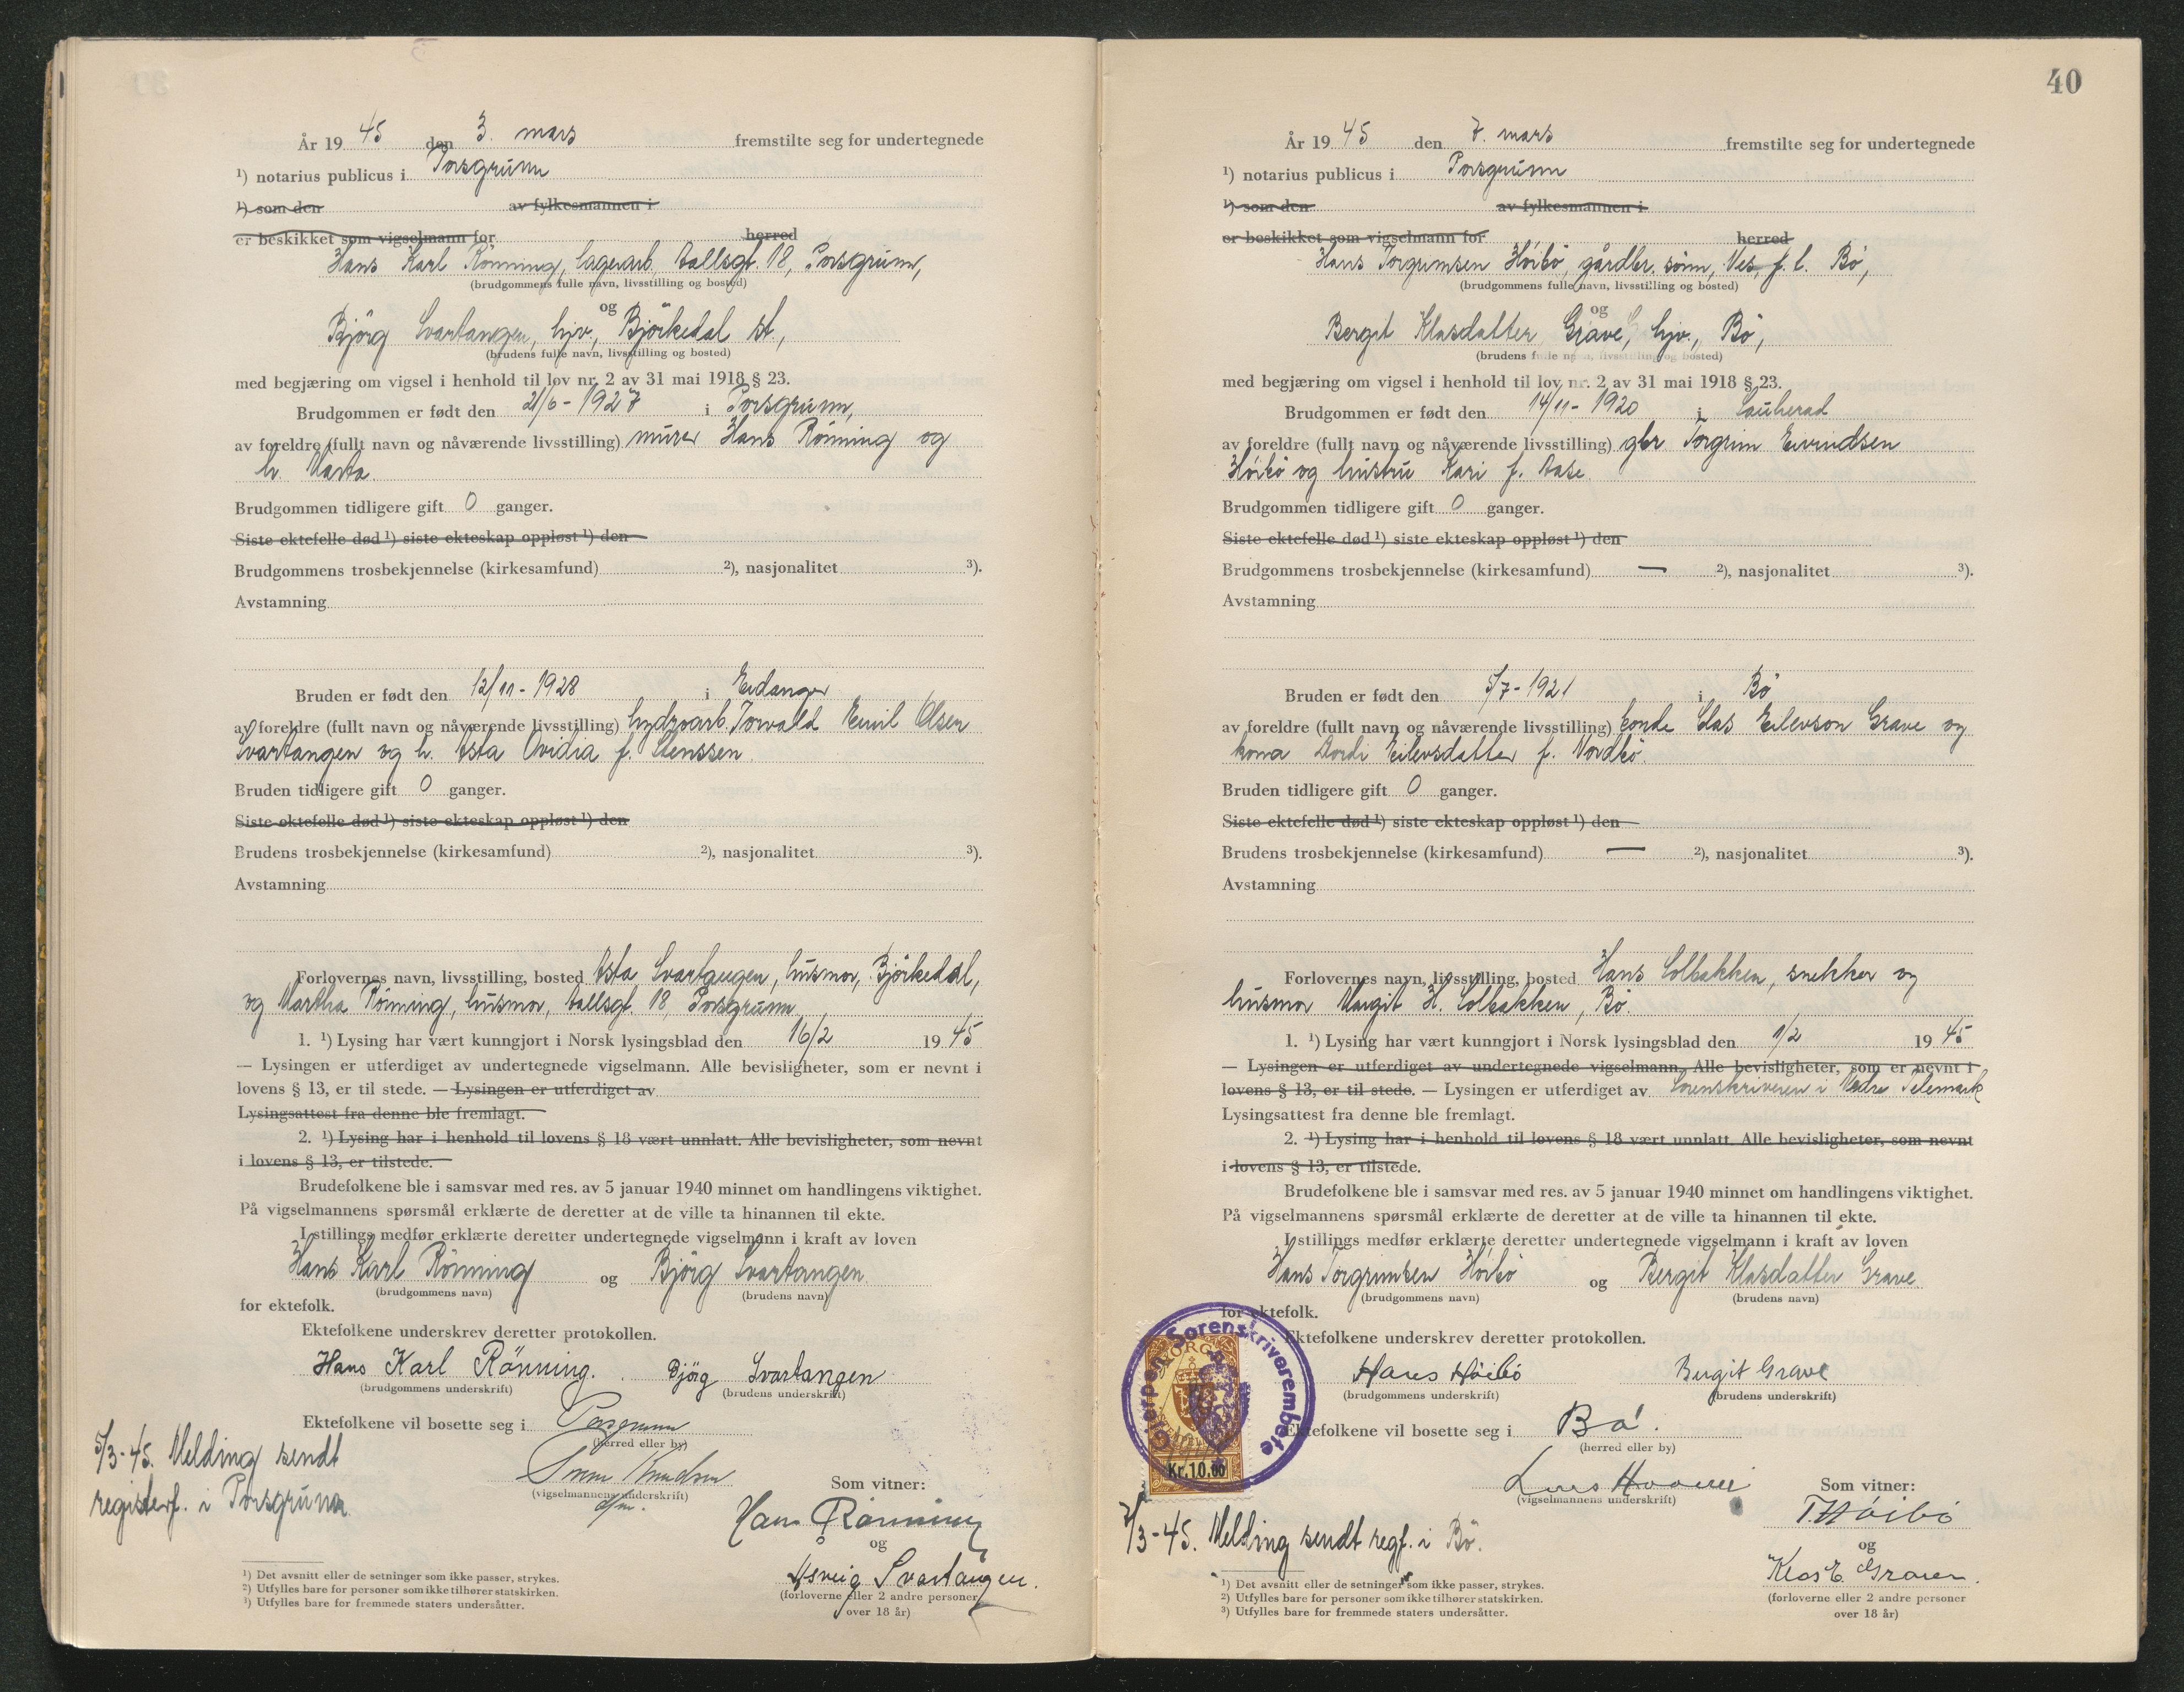 År 19 45 den 3. mars fremstilte seg for undertegnede
¹) notarius publicus i Porsgrunn
¹) som den av fylkesmannen i
er beskikket som vigselmann for herred
Hans Karl Rönning, lagerarb. Aallsgt. 18, Porsgrunn,
(brudgommens fulle navn, livsstilling og bosted)
og
Björg Svartangen, hjv., Björkedal st.,
(brudens fulle navn, livsstilling og bosted)
med begjæring om vigsel i henhold til lov nr. 2 av 31 mai 1918 § 23.
Brudgommen er født den 21/6 - 1927 i Porsgrunn,
av foreldre (fullt navn og nåværende livsstilling) murer Hans Rönning og
h. Marta.
Brudgommen tidligere gift 0 ganger.
Siste ektefelle død ¹) siste ekteskap oppløst ¹) den
Brudgommens trosbekjennelse (kirkesamfund) ²), nasjonalitet ³).
Avstamning
Bruden er født den 12/11 - 1928 i Eidanger
av foreldre (fullt navn og nåværende livsstilling) hydroarb. Torvald Emil Olsen
Svartangen og h. Asta Ovidia f. Stenssen.
Bruden tidligere gift 0 ganger.
Siste ektefelle død ¹) siste ekteskap oppløst ¹) den
Brudens trosbekjennelse (kirkesamfund) ²), nasjonalitet ³).
Avstamning
Forlovernes navn, livsstilling, bosted Asta Svartangen, husmor, Björkedal,
og Martha Rönning, husmor, Aallsgt. 18, Porsgrunn
1. ¹) Lysing har vært kunngjort i Norsk lysingsblad den 16/2 19 45
— Lysingen er utferdiget av undertegnede vigselmann. Alle bevisligheter, som er nevnt i
lovens § 13, er til stede. — Lysingen er utferdiget av
Lysingsattest fra denne ble fremlagt.
2. ¹) Lysing har i henhold til lovens § 18 vært unnlatt. Alle bevisligheter, som nevnt
i lovens § 13, er tilstede.
Brudefolkene ble i samsvar med res. av 5 januar 1940 minnet om handlingens viktighet.
På vigselmannens spørsmål erklærte de deretter at de ville ta hinannen til ekte.
I stillings medfør erklærte deretter undertegnede vigselmann i kraft av loven
Hans Karl Rönning og Björg Svartangen.
(brudgommens navn) (brudens navn)
for ektefolk.
Ektefolkene underskrev deretter protokollen.
Hans Karl Rönning. Björg Svartangen
(brudgommens underskrift) (brudens underskrift)
Ektefolkene vil bosette seg i Porsgrunn
(herred eller by)
5/3-45. Melding sendt
registerf. i Porsgrunn.
Knudsen
(vigselmannens underskrift)
Som vitner:
Hans Rönning
og
Svartangen.
(forloverne eller 2 andre personer
over 18 år)
¹) Det avsnitt eller de setninger som ikke passer, strykes.
²) Utfylles bare for personer som ikke tilhører statskirken.
³) Utfylles bare for fremmede staters undersåtter.
40
År 19 45 den 7. mars fremstilte seg for undertegnede
¹) notarius publicus i Porsgrunn
¹) som den av fylkesmannen i
er beskikket som vigselmann for herred
Hans Torgrimsen Höibö, gårdbr. sönn, Nes, f. l. Bö,
(brudgommens fulle navn, livsstilling og bosted)
og
Bergit Klasdatter Grave, hjv., Bö,
(brudens fulle navn, livsstilling og bosted)
med begjæring om vigsel i henhold til lov nr. 2 av 31 mai 1918 § 23.
Brudgommen er født den 14/11 - 1920 i Sauherad
av foreldre (fullt navn og nåværende livsstilling) gbr Torgrim Eivindsen
Höibö og hustru Kari f. Aase.
Brudgommen tidligere gift 0 ganger.
Siste ektefelle død ¹) siste ekteskap oppløst ¹) den
Brudgommens trosbekjennelse (kirkesamfund) — ²), nasjonalitet ³).
Avstamning
Bruden er født den 5/7 - 1921 i Bö
av foreldre (fullt navn og nåværende livsstilling) bonde Clas Eilevson Grave og
kona Dordi Eilevsdatter f. Nordbö.
Bruden tidligere gift 0 ganger.
Siste ektefelle død ¹) siste ekteskap oppløst ¹) den
Brudens trosbekjennelse (kirkesamfund) — ²), nasjonalitet ³).
Avstamning
Forlovernes navn, livsstilling, bosted Hans Solbakken, snekker og
husmor Margit H. Solbakken, Bö.
1. ¹) Lysing har vært kunngjort i Norsk lysingsblad den 1/2 19 45
— Lysingen er utferdiget av undertegnede vigselmann. Alle bevisligheter, som er nevnt i
lovens § 13, er til stede. — Lysingen er utferdiget av Sorenskriveren i Nedre Telemark
Lysingsattest fra denne ble fremlagt.
2. ¹) Lysing har i henhold til lovens § 18 vært unnlatt. Alle bevisligheter, som nevnt
i lovens § 13, er tilstede.
Brudefolkene ble i samsvar med res. av 5 januar 1940 minnet om handlingens viktighet.
På vigselmannens spørsmål erklærte de deretter at de ville ta hinannen til ekte.
I stillings medfør erklærte deretter undertegnede vigselmann i kraft av loven
Hans Torgrimsen Höibö og Bergit Klasdatter Grave.
(brudgommens navn) (brudens navn)
for ektefolk.
Ektefolkene underskrev deretter protokollen.
Hans Höibö Bergit Grave
(brudgommens underskrift) (brudens underskrift)
Ektefolkene vil bosette seg i Bö.
(herred eller by)
Gjerpen Sorenskriverembete
NORGE
Kr. 10.00
Lars
(vigselmannens underskrift)
Som vitner:
T. Höibö
og
Klas E. Graver.
(forloverne eller 2 andre personer
over 18 år)
7/3-45. Melding sendt regf. i Bö.
¹) Det avsnitt eller de setninger som ikke passer, strykes.
²) Utfylles bare for personer som ikke tilhører statskirken.
³) Utfylles bare for fremmede staters undersåtter.